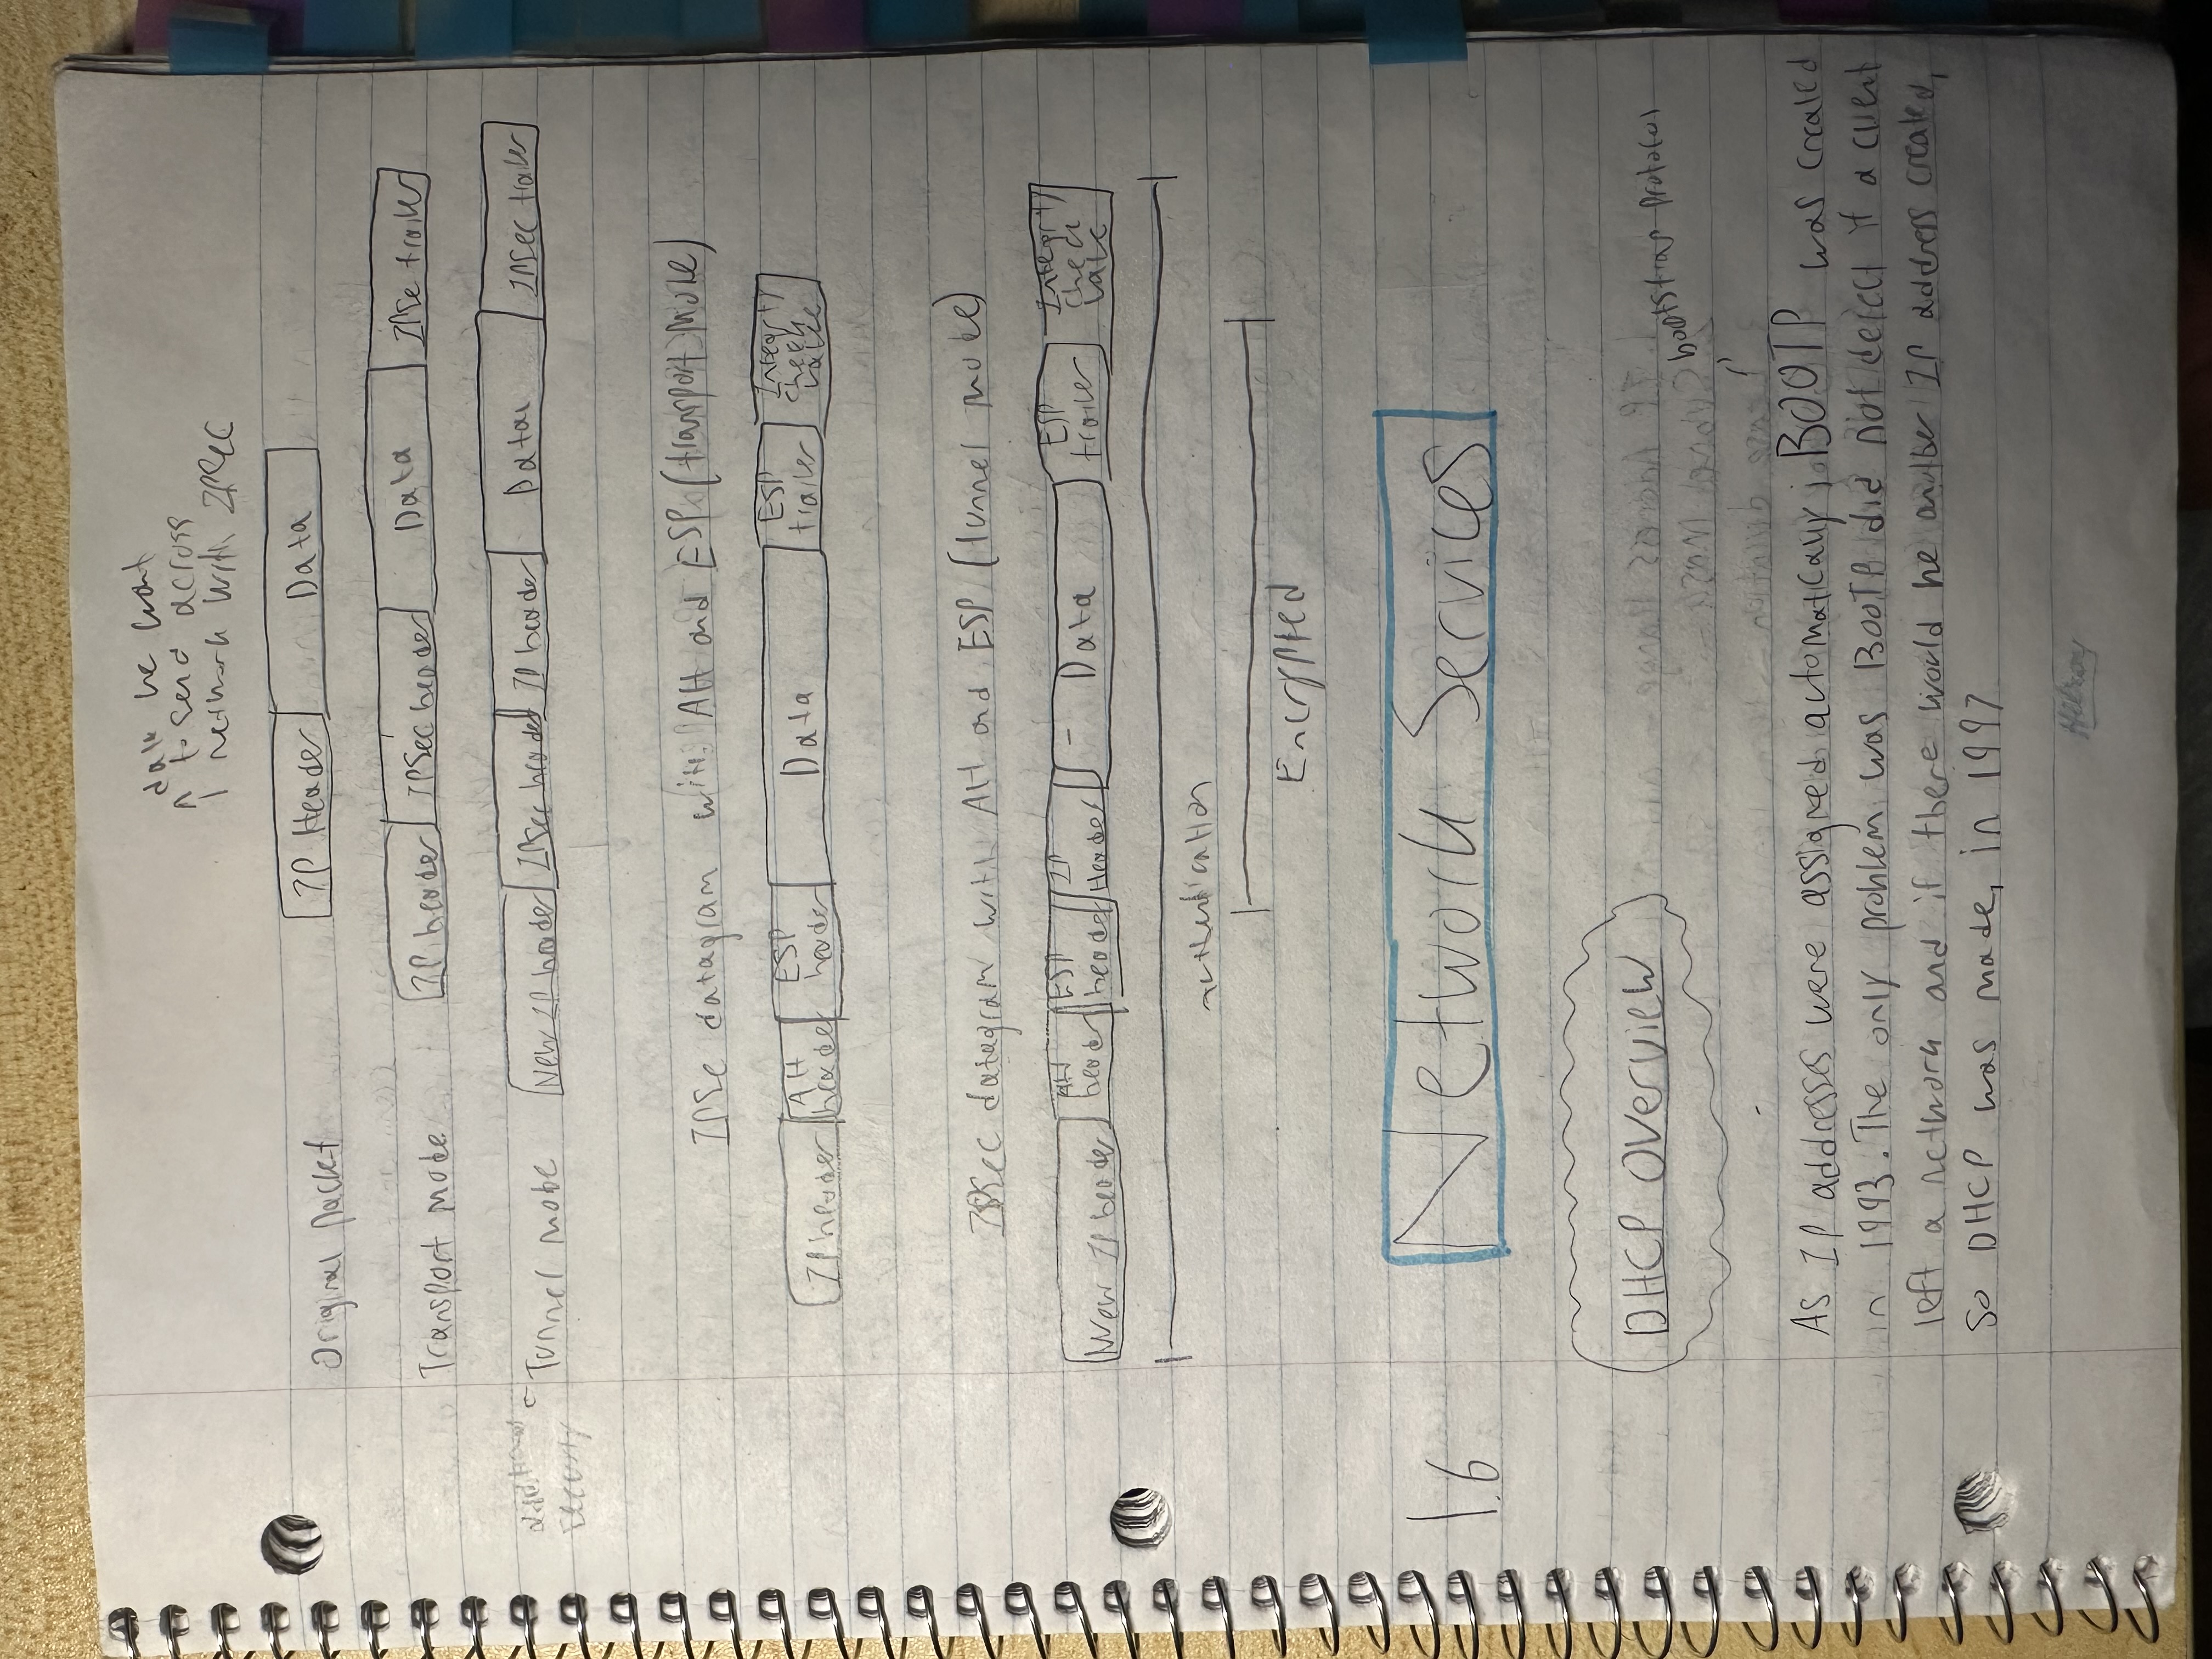 data we want
to send across
network with IPSec
Original Packet
IP Header Data
Transport mode
IP header IPSec header Data IPSec trailer
additional
security
Tunnel mode
New IP header IPSec header IP header Data IPSec trailer
IPSec datagram with AH and ESP (transport mode)
IP header AH header ESP header Data ESP trailer Integrity check value
IPSec datagram with AH and ESP (tunnel mode)
New IP header AH header ESP header IP Header Data ESP trailer Integrity check value
authentication
Encrypted
1.6 Network Services
DHCP Overview
bootstrap protocol
As IP addresses were assigned automatically, BOOTP was created
in 1993. The only problem was BOOTP did not detect if a client
left a network and if there would be another IP address created,
so DHCP was made, in 1997
Hilroy